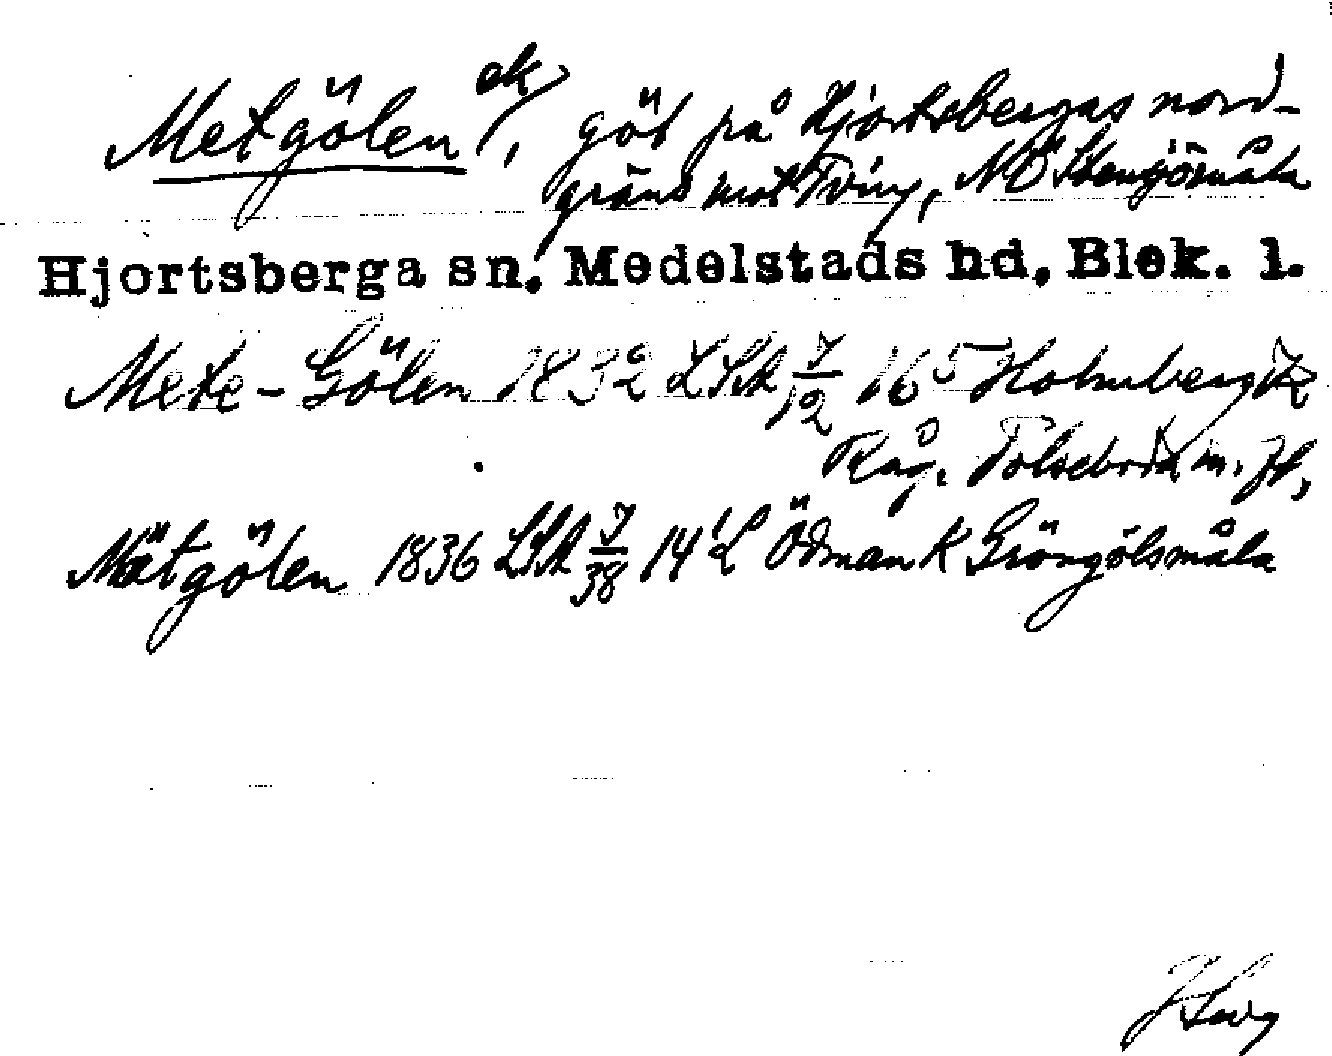 Metgölen ek/, göl på Hjortsbergas nord-
gräns mot Tving, NÖ Stensjömåla
Hjortsberga sn. Medelstads hd. Blek. l.
Mete-Gölen 1832 LSA J/12 165 Holmberg K
Råg. Tolseboda m. fl,
Mätgölen 1836 LSA J/38 14 L Ödman K Gröngölsmåla